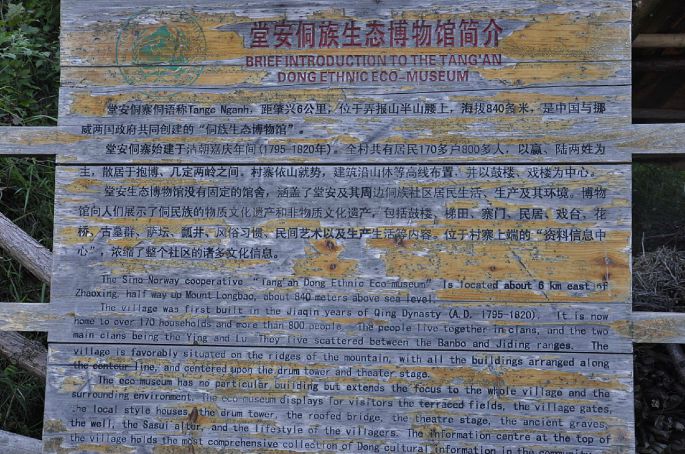 堂安侗族生态博物馆简介
BRIEF INTRODUCTION TO THE TANG'AN
DONG ETHNIC ECO-MUSEUM
堂安侗寨侗语称Tangc Nganh，距肇兴6公里，位于弄报山半山腰上，海拔840多米，是中国与挪
威两国政府共同创建的“侗族生态博物馆”。
堂安侗寨始建于清朝嘉庆年间（1795-1820年）。全村共有居民170多户800多人，以嬴、陆两姓为
主，散居于抱博、几定两岭之间，村寨依山就势，建筑沿山体等高线布置，并以鼓楼、戏楼为中心。
堂安生态博物馆没有固定的馆舍，涵盖了堂安及其周边侗族社区居民生活、生产及其环境。博物
馆向人们展示了侗民族的物质文化遗产和非物质文化遗产，包括鼓楼、梯田、寨门、民居、戏台、花
桥、古墓群、萨坛、瓢井、风俗习惯、民间艺术以及生产生活等内容。位于村寨上端的“资料信息中
心”，浓缩了整个社区的诸多文化信息。
The Sino-Norway cooperative "Tang'an Dong Ethnic Eco-museum" is located about 6 km east of
Zhaoxing, half way up Mount Longbao, about 840 meters above sea level.
The village was first built in the Jiaqin years of Qing Dynasty (A.D. 1795-1820). It is now
home to over 170 households and more than 800 people. The people live together in clans, and the two
main clans being the Ying and Lu. They live scattered between the Banbo and Jiding ranges. The
village is favorably situated on the ridges of the mountain, with all the buildings arranged along
the contour line, and centered upon the drum tower and theater stage.
The eco-museum has no particular building but extends the focus to the whole village and the
surrounding environment. The eco-museum displays for visitors the terraced fields, the village gates,
the local style houses, the drum tower, the roofed bridge, the theatre stage, the ancient graves,
the well, the Sasui altar, and the lifestyle of the villagers. The information centre at the top of
the village holds the most comprehensive collection of Dong cultural information in the community.